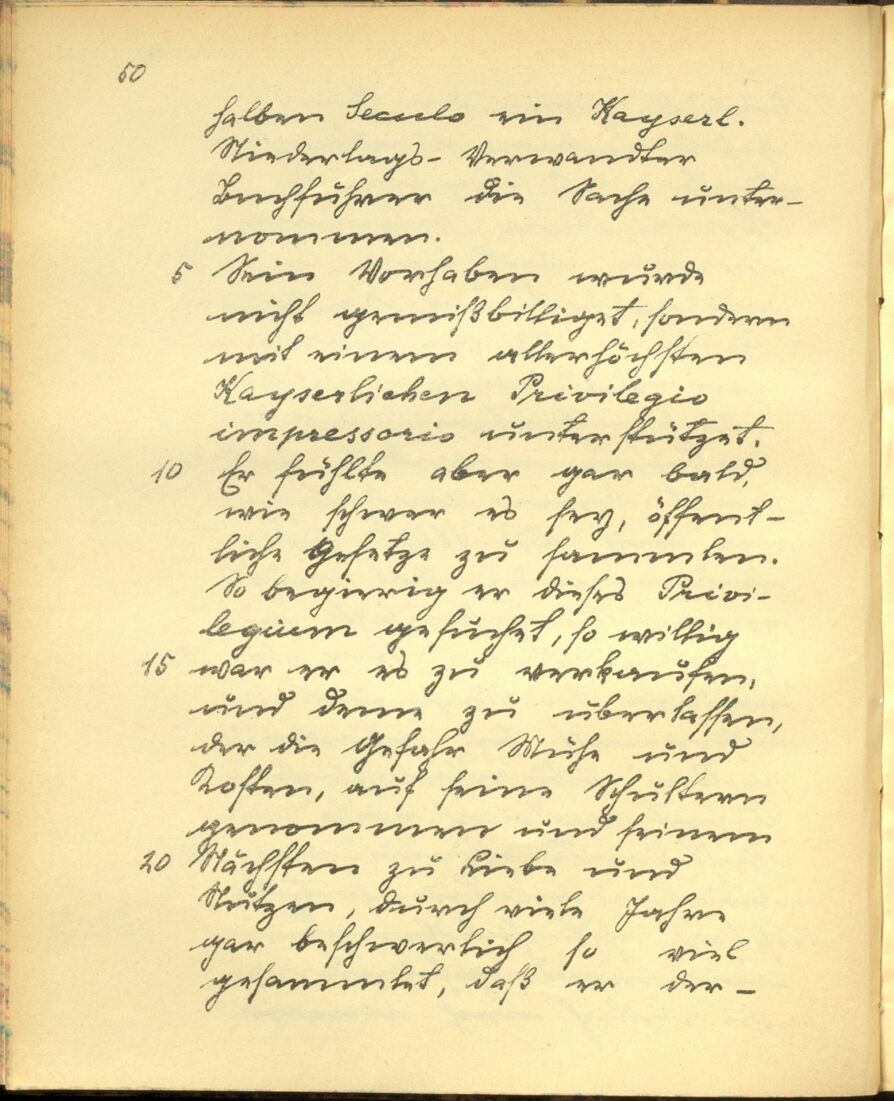 50
halben Seculo ein Kayserl.
Niederlags- Verwandter
Buchführer die Sache unter-
nommen.
5 Sein Vorhaben wurde
nicht gemißbilliget, sondern
mit einem allerhöchsten
Kayserlichen Privilegio
impressorio unterstützet.
10 Er fühlte aber gar bald,
wie schwer es sey, öffent-
liche Gesetze zu sammlen.
So begierig er dieses Privi-
legium gesuchet, so willig
15 war er es zu verkaufen,
und deme zu überlassen,
der die Gefahr Mühe und
Kosten, auf seine Schultern
genommen und seinem
20 Nächsten zu Liebe und
Nutzen, durch viele Jahre
gar beschwerlich so viel
gesammlet, daß er der-